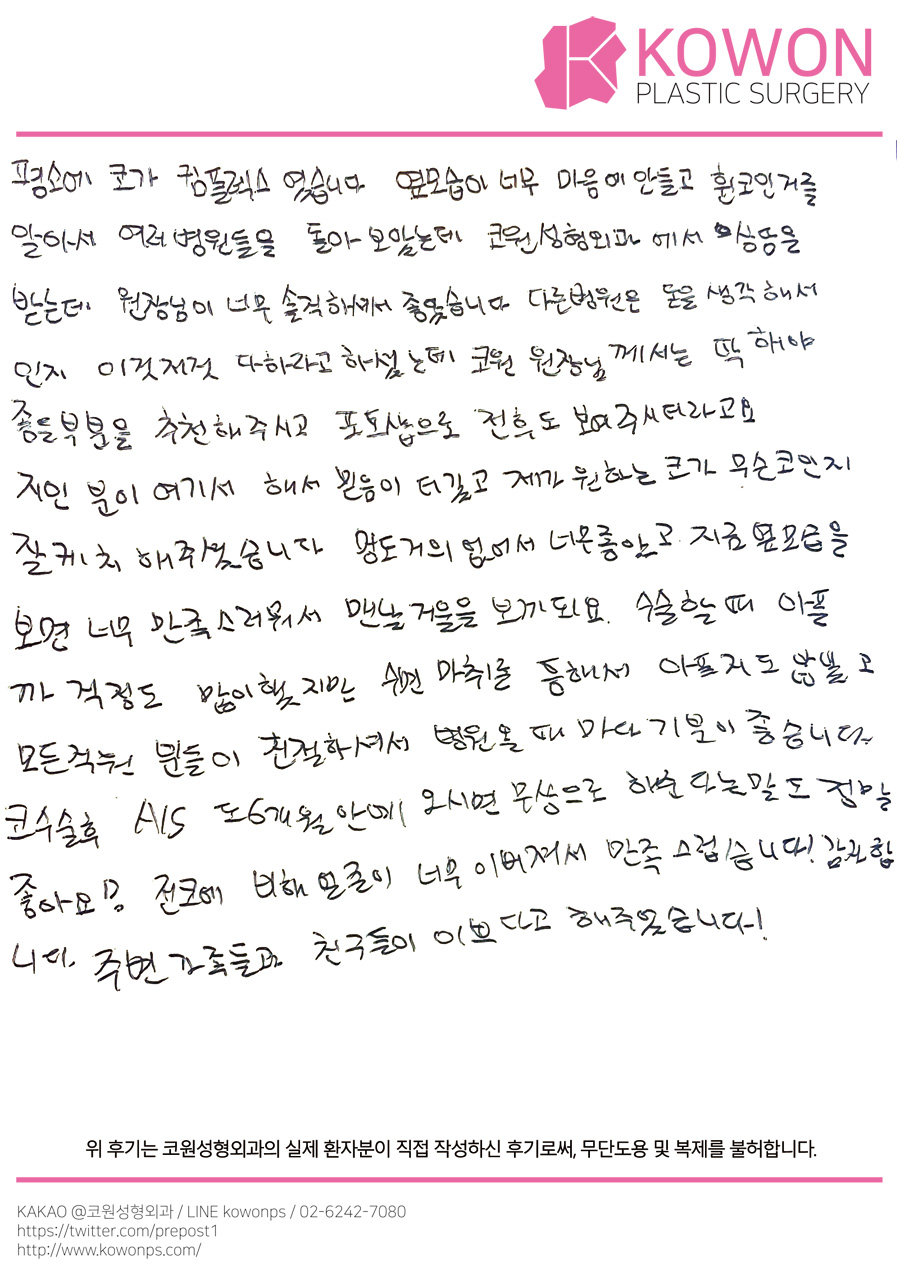 KOWON
PLASTIC SURGERY
평소에 코가 컴플렉스 였습니다 옆모습이 너무 마음에 안들고 휜코인거를
알아서 여러병원들을 돌아 보았는데 코원성형외과 에서 상담을
받는데 원장님이 너무 솔직해서 좋았습니다 다른병원은 돈을 생각해서
인지 이것저것 다하라고 하셨는데 코원 원장님께서는 딱 해야
좋을부분을 추천해주시고 포토샵으로 전후도 보여주시더라고요
지인 분이 여기서 해서 믿음이 더갔고 제가 원하는 코가 무슨코인지
잘캐치 해주셨습니다 멍도거의 없어서 너무좋았고 지금 옆모습을
보면 너무 만족스러워서 맨날 거울을 보게되요. 수술할 때 아플
까 걱정도 많이했지만 수면 마취를 통해서 아프지도 않았고
모든직원 분들이 친절하셔서 병원올 때 마다 기분이 좋습니다.
코수술후 A/S 도 6개월 안에 오시면 무상으로 해준다는말도 정말
좋아요 전코에 비해 얼굴이 너무 이뻐져서 만족 스럽습니다! 감사합
니다. 주변 가족들과 친구들이 이쁘다고 해주었습니다!
위 후기는 코원성형외과의 실제 환자분이 직접 작성하신 후기로써, 무단도용 및 복제를 불허합니다.
KAKAO @코원성형외과 / LINE kowonps / 02-6242-7080
https://twitter.com/prepost1
http://www.kowonps.com/